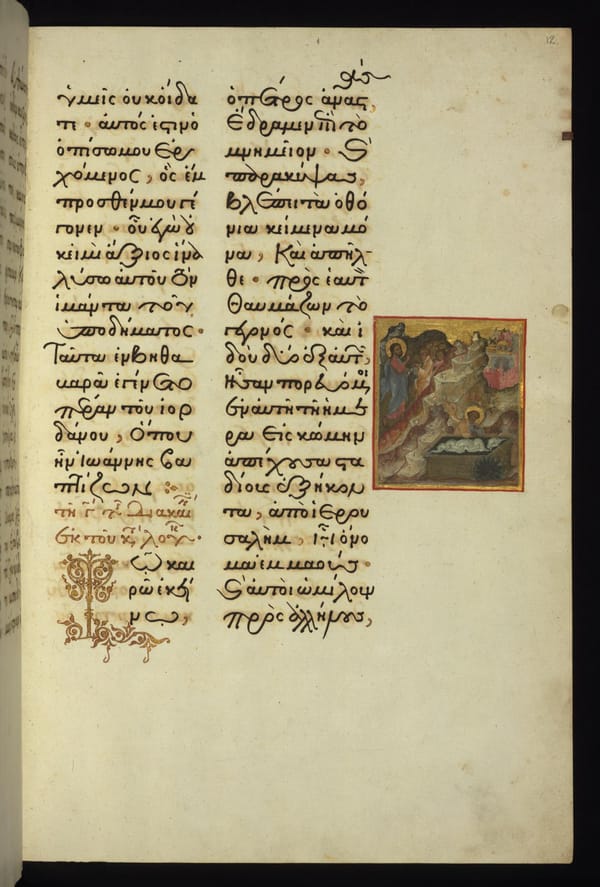 ὑμεῖς οὐκ οἴδα
τε · αὐτός ἐστιν ὁ
ὀπίσω μου ἐρ
χόμενος, ὃς ἔμ
προσθέν μου γέ
γονεν · οὗ ἐγὼ οὐ
κ εἰμὶ ἄξιος ἵνα
λύσω αὐτοῦ τὸν
ἱμάντα τοῦ
ὑποδήματος ·
Ταῦτα ἐν βηθα
βαρᾶ ἐγένετο
πέραν τοῦ ἰορ
δάνου, ὅπου
ἦν Ἰωάννης βα
πτίζων :
τῇ γ τῆς διακαι
ἐκ τοῦ κτ λουκ ·
Τῷ και
ρῷ ἐκεί
νῳ,
ὁ πέτρος ἀναστὰς,
ἔδραμεν ἐπὶ τὸ
μνημεῖον · καὶ
παρακύψας,
βλέπει τὰ ὀθό
νια κείμενα μό
να, Καὶ ἀπῆλ
θε · πρὸς ἑαυτὸν
θαυμάζων τὸ
γεγονός · καὶ ἰ
δοὺ δύο ἐξ αὐτῶν,
ἦσαν πορευόμενοι
ἐν αὐτῇ τῇ ἡμέ
ρα εἰς κώμην
ἀπέχουσαν στα
δίους ἑξήκον
τα, ἀπὸ ἰερου
σαλὴμ, ᾗ ὄνο
μα ἐμμαούς ·
καὶ αὐτοὶ ὡμίλουν
πρὸς ἀλλήλους,
12